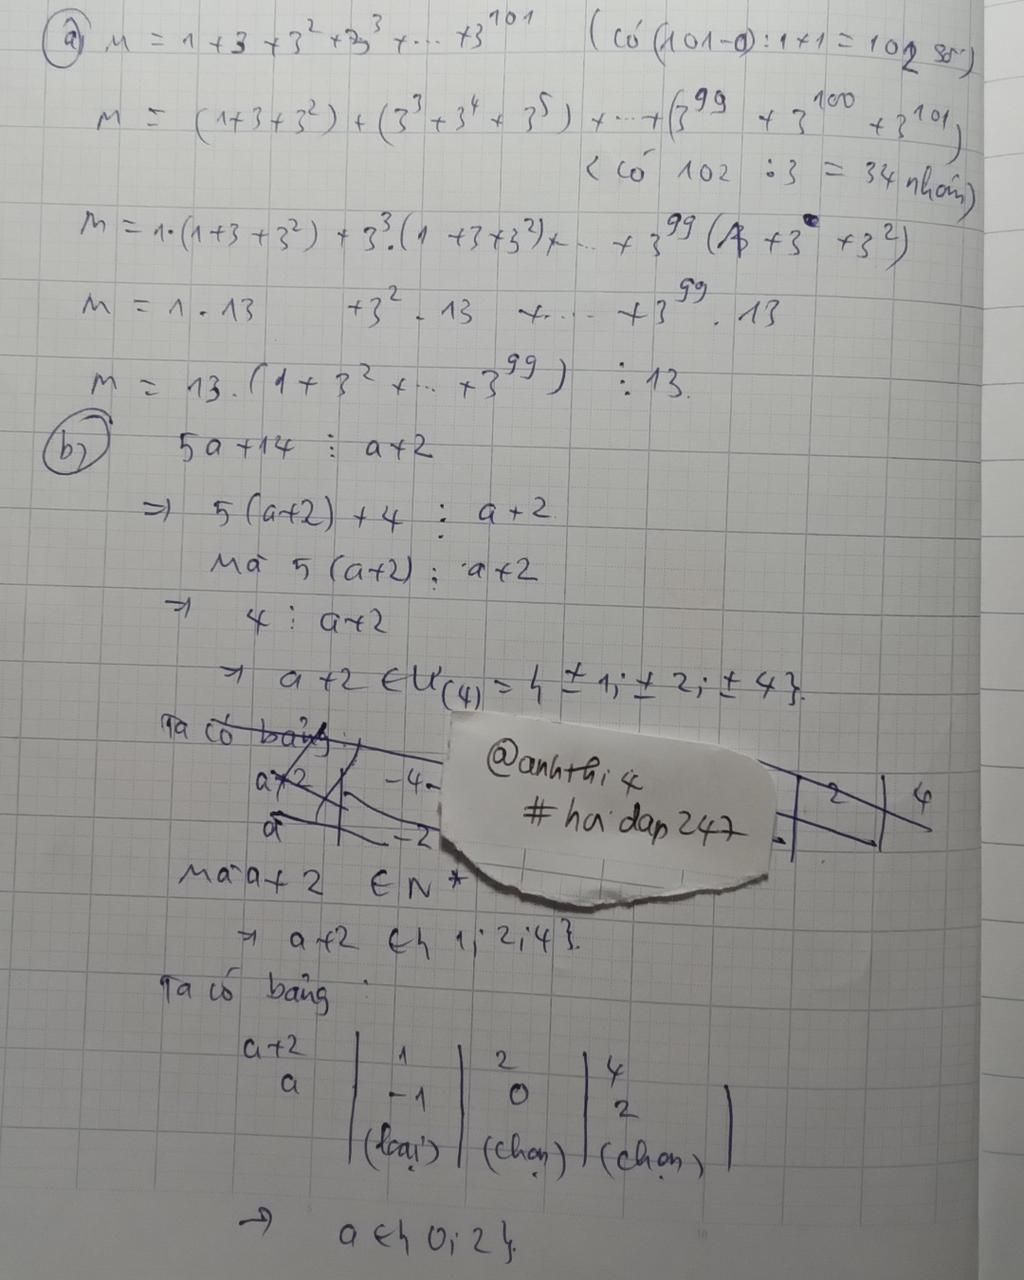 a) M = 1 + 3 + 3² + 3³ + ... + 3¹⁰¹ (có (101-0):1+1 = 102 số)
M = (1+3+3²) + (3³+3⁴+3⁵) + ... + (3⁹⁹ + 3¹⁰⁰ + 3¹⁰¹)
(có 102 : 3 = 34 nhóm)
M = 1.(1+3+3²) + 3³.(1+3+3²)+ ... + 3⁹⁹(1+3+3²)
M = 1.13 +3².13 +.... +3⁹⁹.13
M = 13.(1+3²+...+3⁹⁹) ⋮ 13.
b) 5a+14 ⋮ a+2
=> 5(a+2)+4 ⋮ a+2
Mà 5(a+2) ⋮ a+2
=> 4 ⋮ a+2
=> a+2 ∈ Ư(4) = {±1; ±2; ±4}.
Ta có bảng:
a+2 -4 2 4
a -2
@anhthi4
#hoidap247
Mà a+2 ∈ N*
=> a+2 ∈ {1; 2; 4}.
Ta có bảng:
a+2 1 2 4
a -1 0 2
(loại) (chọn) (chọn)
=> a ∈ {0; 2}.